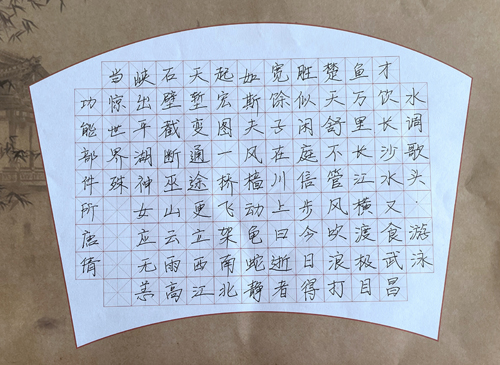 水调歌头·游泳
才饮长沙水又食武昌
鱼万里长江横渡极目
楚天舒不管风吹浪打
胜似闲庭信步今日得
宽馀子在川上曰逝者
如斯夫风樯动龟蛇静
起宏图一桥飞架南北
天堑变通途更立西江
石壁截断巫山云雨高
峡出平湖神女应无恙
当惊世界殊
功能部件所唐倩